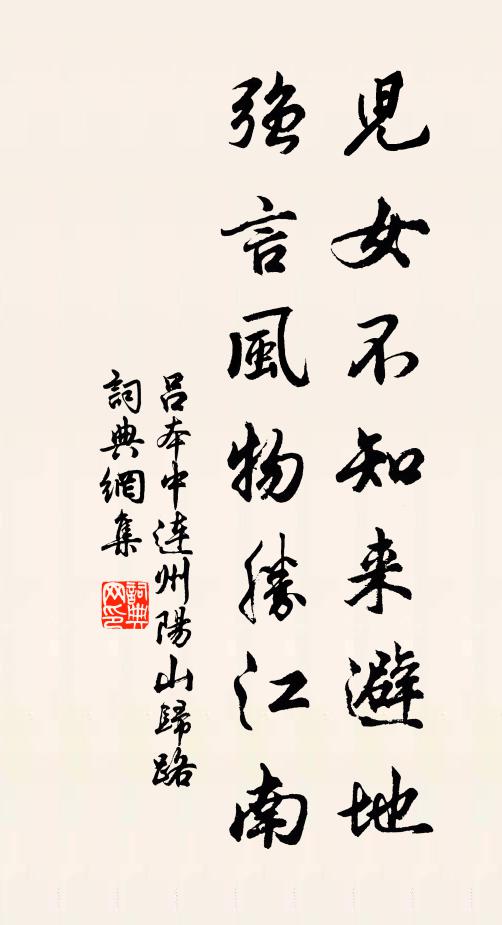 兒女不知来避地
強言風物勝江南
呂本中連州陽山歸路
詞典網集
詞典网印